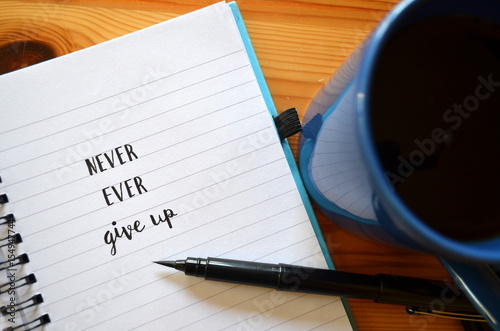 NEVER
EVER
give up